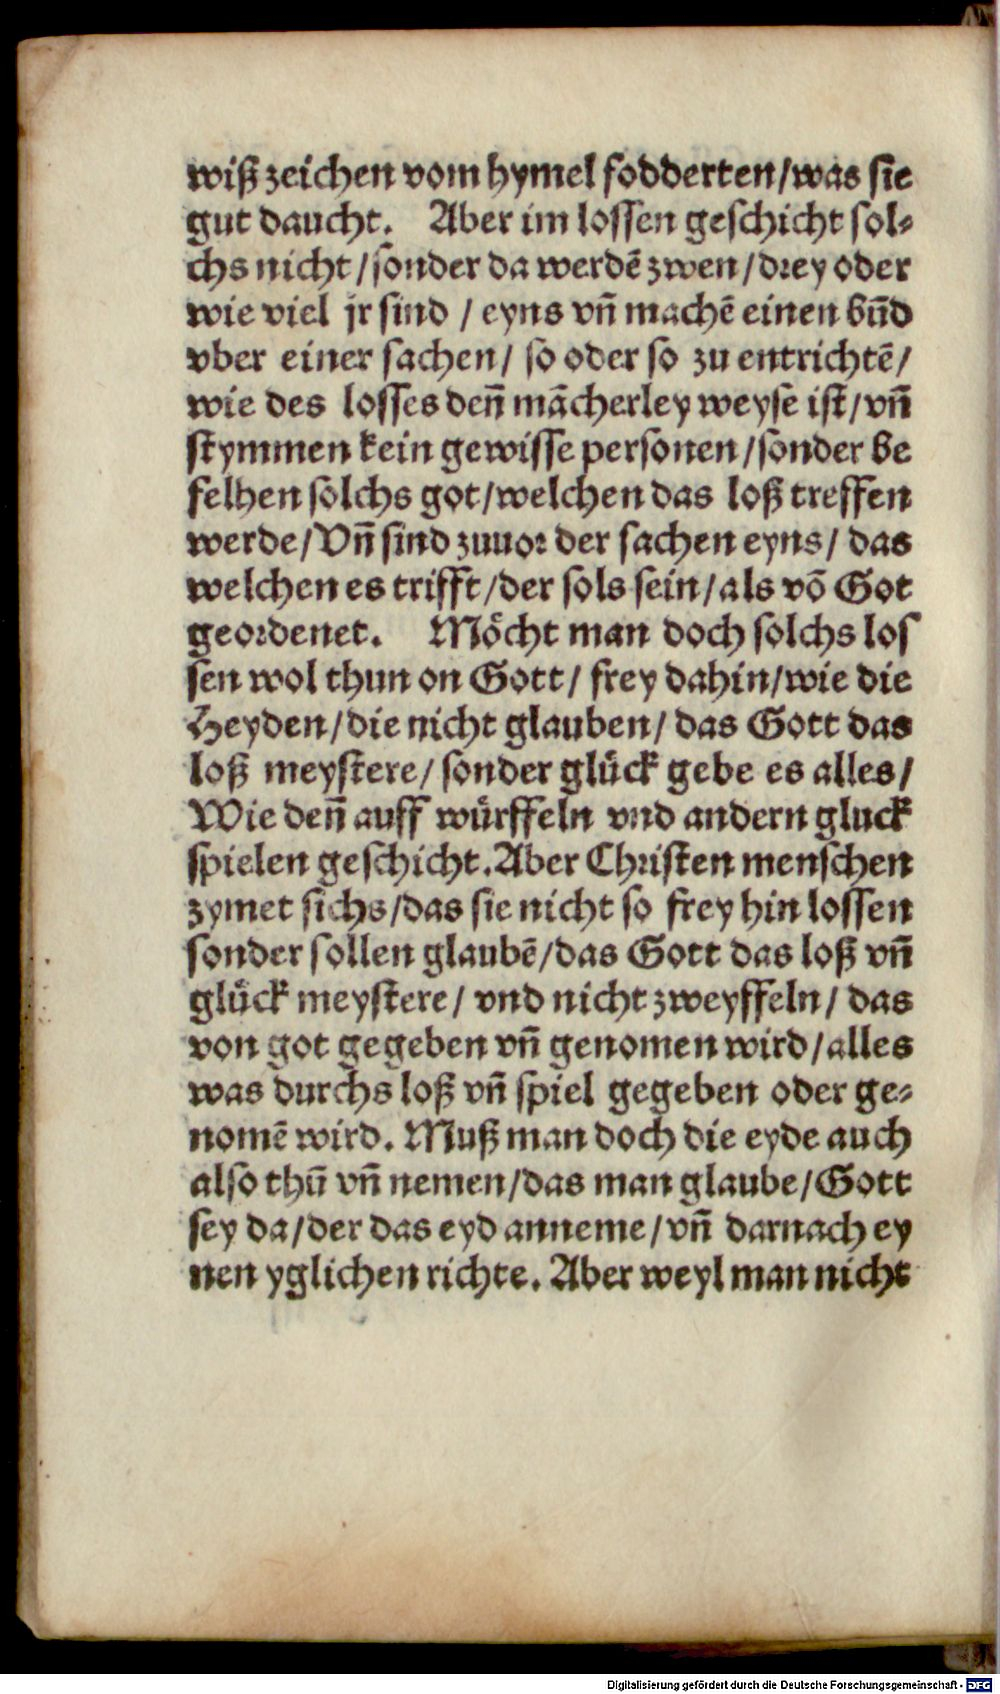 wiß zeichen vom hymel fodderten/was sie
gut daucht. Aber im lossen geschicht sol⸗
chs nicht/sonder da werdẽ zwen/drey oder
wie viel jr sind / eyns vñ machẽ einen bũd
vber einer sachen/ so oder so zu entrichtẽ/
wie des losses deñ mãcherley weyse ist/vñ
stymmen kein gewisse personen/sonder be
felhen solchs got/welchen das loß treffen
werde/Vñ sind zuuor der sachen eyns/ das
welchen es trifft/der sols sein/als võ Got
geordenet. Möcht man doch solchs los
sen wol thun on Gott/ frey dahin/wie die
Heyden/die nicht glauben/ das Gott das
loß meystere/ sonder glück gebe es alles/
Wie deñ auff würffeln vnd andern gluck
spielen geschicht.Aber Christen menschen
zymet sichs/das sie nicht so frey hin lossen
sonder sollen glaubẽ/das Gott das loß vñ
glück meystere/ vnd nicht zweyffeln/ das
von got gegeben vñ genomen wird/alles
was durchs loß vñ spiel gegeben oder ge⸗
nomẽ wird. Muß man doch die eyde auch
also thũ vñ nemen/das man glaube/Gott
sey da/der das eyd anneme/vñ darnach ey
nen yglichen richte. Aber weyl man nicht
Digitalisierung gefördert durch die Deutsche Forschungsgemeinschaft - DFG